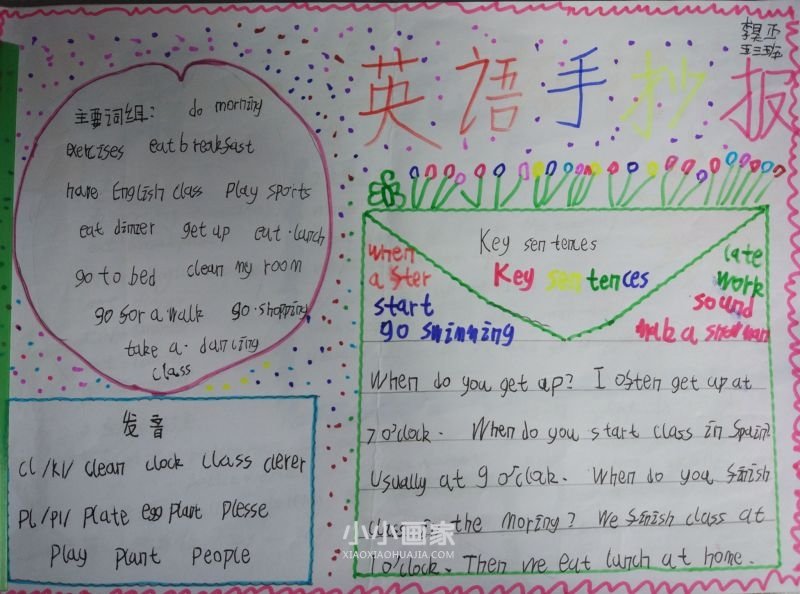 五三班
英语手抄报
主要词组： do morning
exercises eat breakfast
have English class play sports
eat dinner get up eat·lunch
go to bed clean my room
go for a walk go·shopping
take a·dancing
class
发音
cl /kl/ clean clock class clever
pl /pl/ plate eggplant plesse
play plant people
Key sentences
Key sentences
when
after
start
go swimming
late
work
sound
make a snowman
When do you get up? I often get up at
7 o'clock. When do you start class in Spain?
Usually at 9 o'clock. When do you finish
class in the moring? We finish class at
1 o'clock. Then we eat lunch at home.
小小画家
XIAOXIAOHUAJIA.COM